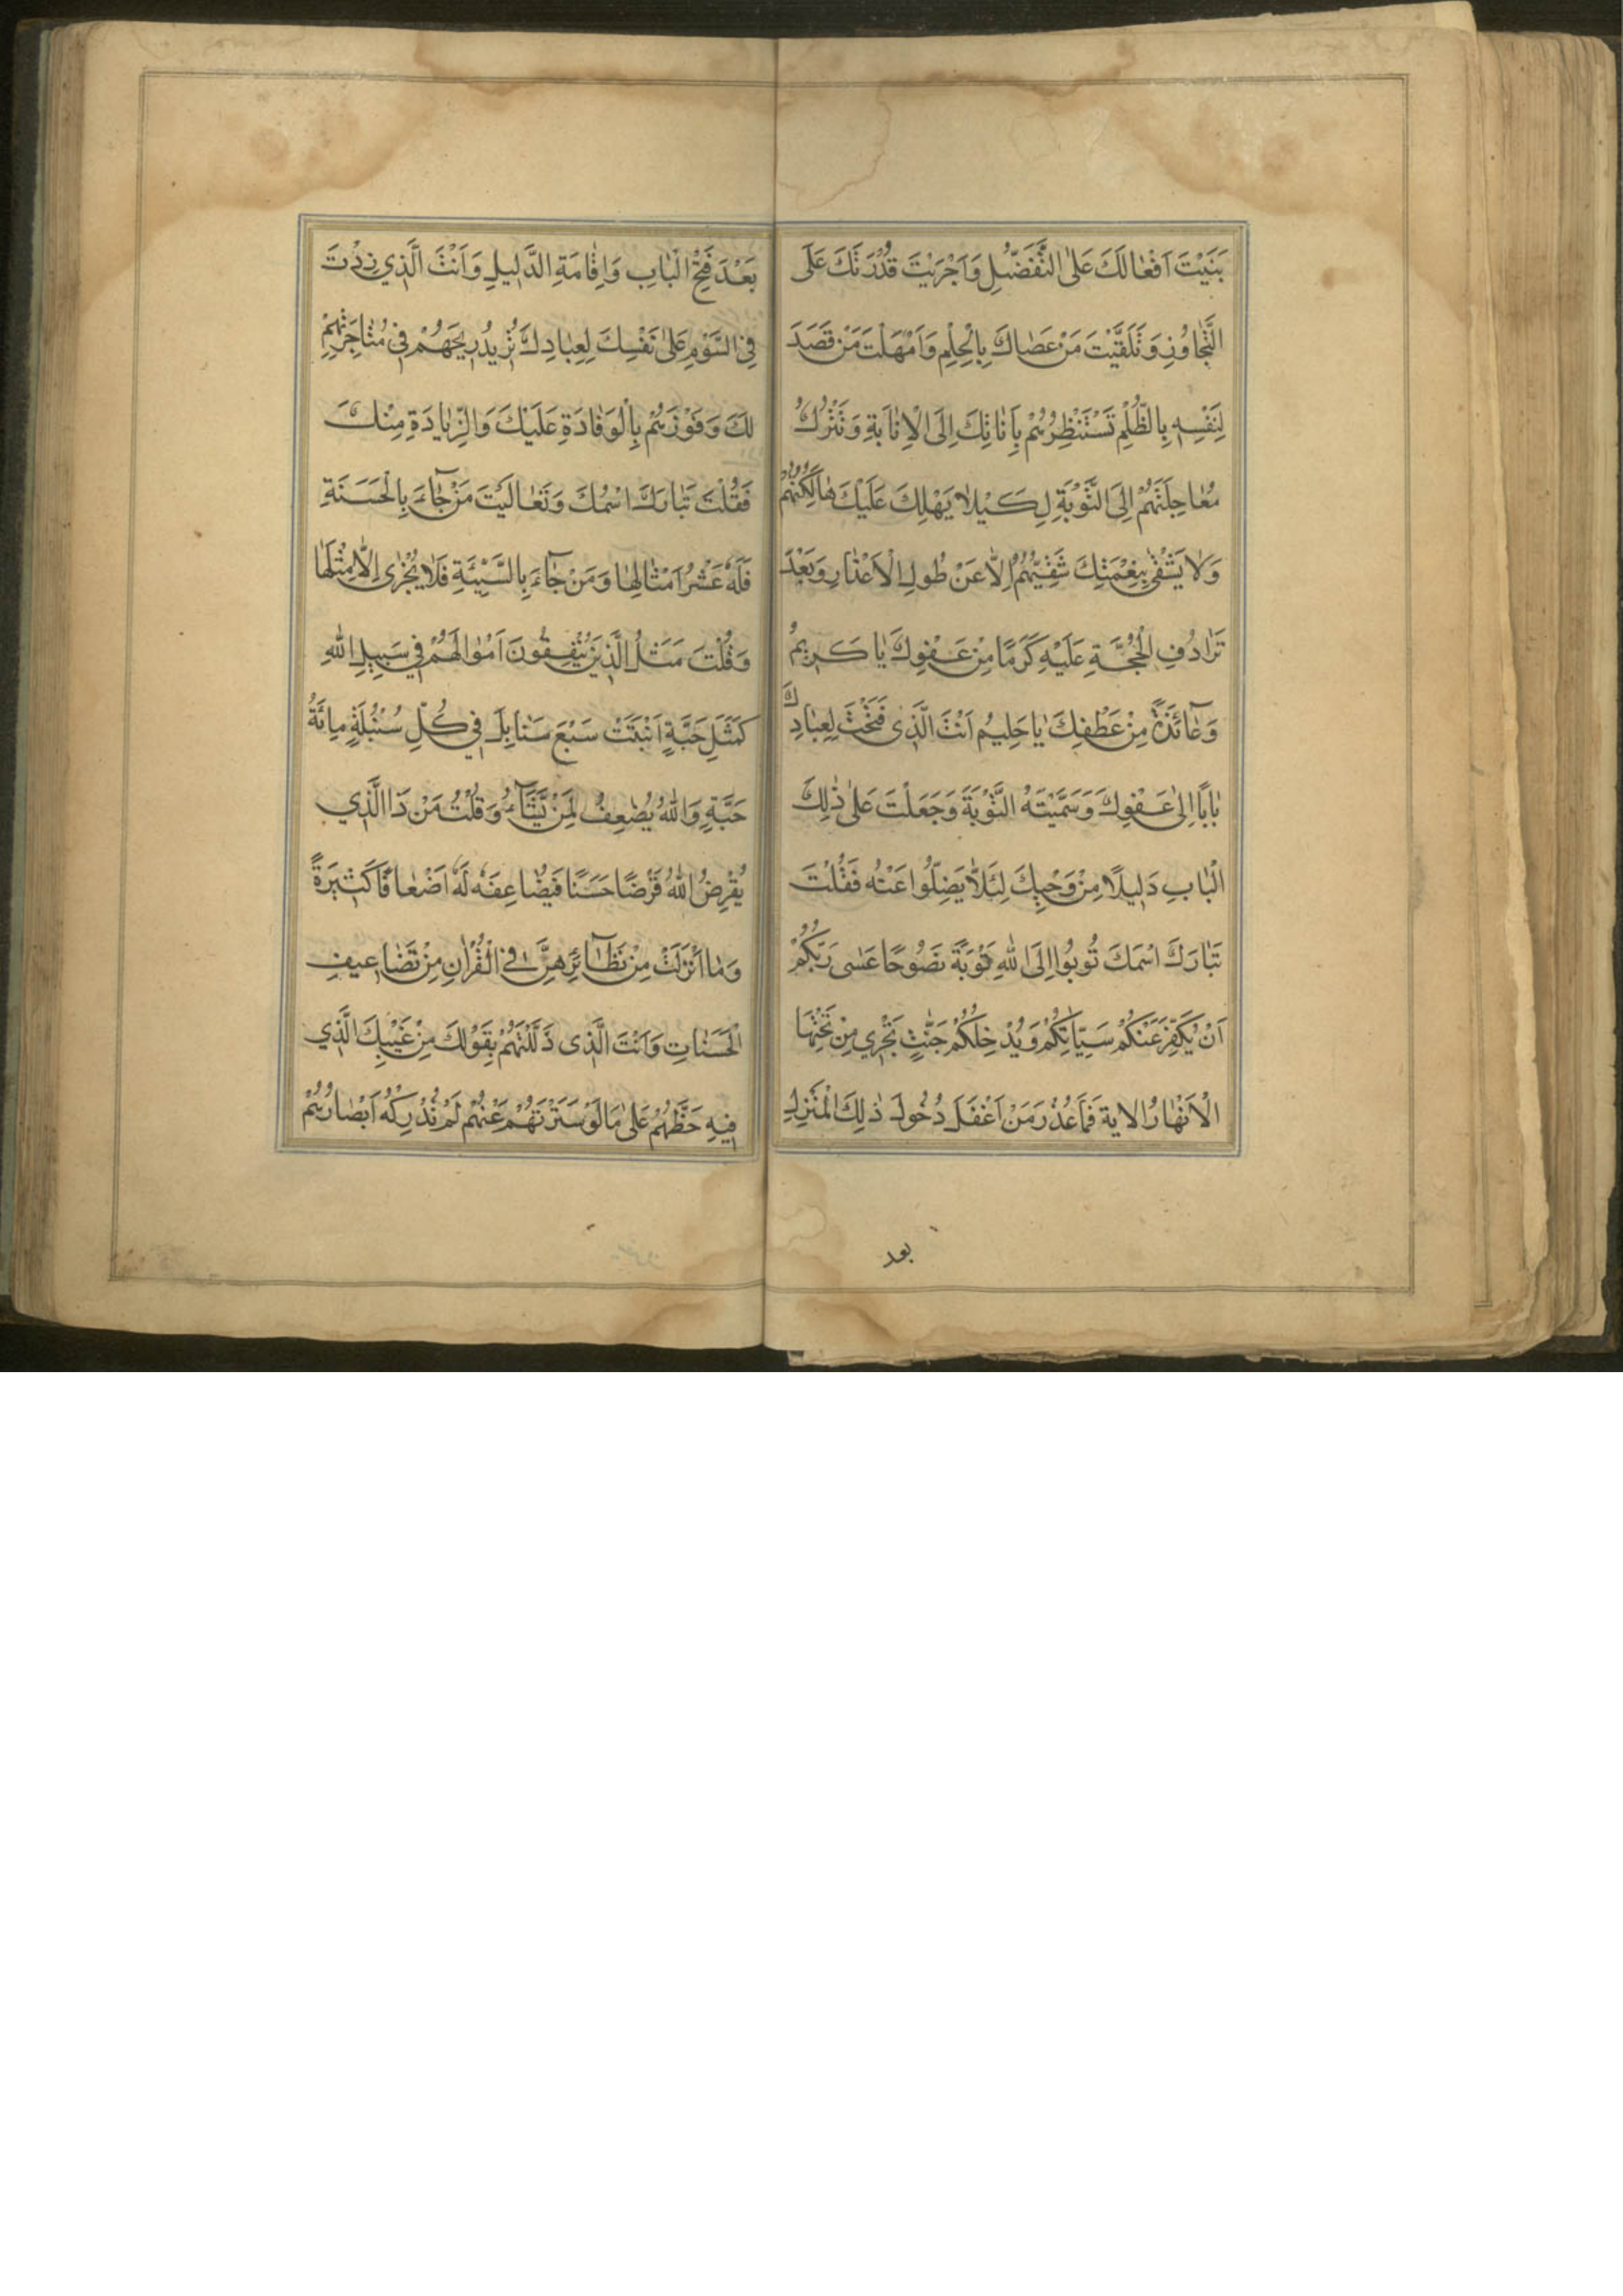 بَنَيْتَ اَفْعٰالَكَ عَلَى التَّفَضُّلِ وَاَجْرَيْتَ قُدْرَتَكَ عَلَى
التَّجٰاوُزِ وَتَلَقَّيْتَ مَنْ عَصٰاكَ بِالْحِلْمِ وَاَمْهَلْتَ مَنْ قَصَدَ
لِنَفْسِهِ بِالظُّلْمِ تَسْتَنْظِرُهُمْ بِاَنٰاتِكَ اِلَى الْاِنٰابَةِ وَتَتْرُكُ
مُعٰاجَلَتَهُمْ اِلَى التَّوْبَةِ لِكَيْلٰا يَهْلِكَ عَلَيْكَ هٰالِكُهُمْ
وَلٰا يَشْقٰى بِنِعْمَتِكَ شَقِيُّهُمْ اِلّٰا عَنْ طُولِ الْاَعْذٰارِ وَبَعْدَ
تَرٰادُفِ الْحُجَّةِ عَلَيْهِ كَرَمًا مِنْ عَفْوِكَ يٰا كَرِيمُ
وَعٰائِدَةً مِنْ عَطْفِكَ يٰا حَلِيمُ اَنْتَ الَّذِى فَتَحْتَ لِعِبٰادِكَ
بٰابًا اِلٰى عَفْوِكَ وَسَمَّيْتَهُ التَّوْبَةَ وَجَعَلْتَ عَلٰى ذٰلِكَ
الْبٰابِ دَلِيلًا مِنْ وَحْيِكَ لِئَلّٰا يَضِلُّوا عَنْهُ فَقُلْتَ
تَبٰارَكَ اسْمُكَ تُوبُوا اِلَى اللهِ تَوْبَةً نَصُوحًا عَسٰى رَبُّكُمْ
اَنْ يُكَفِّرَ عَنْكُمْ سَيِّاٰتِكُمْ وَيُدْخِلَكُمْ جَنّٰتٍ تَجْرِي مِنْ تَحْتِهَا
الْاَنْهٰارُ الاية فَمٰا عُذْرُ مَنْ اَغْفَلَ دُخُولَ ذٰلِكَ الْمَنْزِلِ
بعد
بَعْدَ فَتْحِ الْبٰابِ وَاِقٰامَةِ الدَّلِيلِ وَاَنْتَ الَّذِي زِدْتَ
فِي السَّوْمِ عَلٰى نَفْسِكَ لِعِبٰادِكَ تُرِيدُ رِبْحَهُمْ فِي مُتٰاجَرَتِهِمْ
لَكَ وَفَوْزَهُمْ بِالْوِفٰادَةِ عَلَيْكَ وَالزِّيٰادَةِ مِنْكَ
فَقُلْتَ تَبٰارَكَ اسْمُكَ وَتَعٰالَيْتَ مَنْ جٰاءَ بِالْحَسَنَةِ
فَلَهُ عَشْرُ اَمْثٰالِهٰا وَمَنْ جٰاءَ بِالسَّيِّئَةِ فَلٰا يُجْزٰى اِلّٰا مِثْلَهٰا
وَقُلْتَ مَثَلُ الَّذِينَ يُنْفِقُونَ اَمْوٰالَهُمْ فِي سَبِيلِ اللهِ
كَمَثَلِ حَبَّةٍ اَنْبَتَتْ سَبْعَ سَنٰابِلَ فِي كُلِّ سُنْبُلَةٍ مِائَةُ
حَبَّةٍ وَاللهُ يُضٰعِفُ لِمَنْ يَّشٰاءُ وَقُلْتَ مَنْ ذَا الَّذِي
يُقْرِضُ اللهَ قَرْضًا حَسَنًا فَيُضٰاعِفَهُ لَهُ اَضْعٰافًا كَثِيرَةً
وَمٰا اَنْزَلْتَ مِنْ نَظٰائِرِهِنَّ فِي الْقُرْاٰنِ مِنْ تَضٰاعِيفِ
الْحَسَنٰاتِ وَاَنْتَ الَّذِى دَلَلْتَهُمْ بِقَوْلِكَ مِنْ غَيْبِكَ الَّذِي
فِيهِ حَظُّهُمْ عَلٰى مٰا لَوْ سَتَرْتَهُ عَنْهُمْ لَمْ تُدْرِكْهُ اَبْصٰارُهُمْ